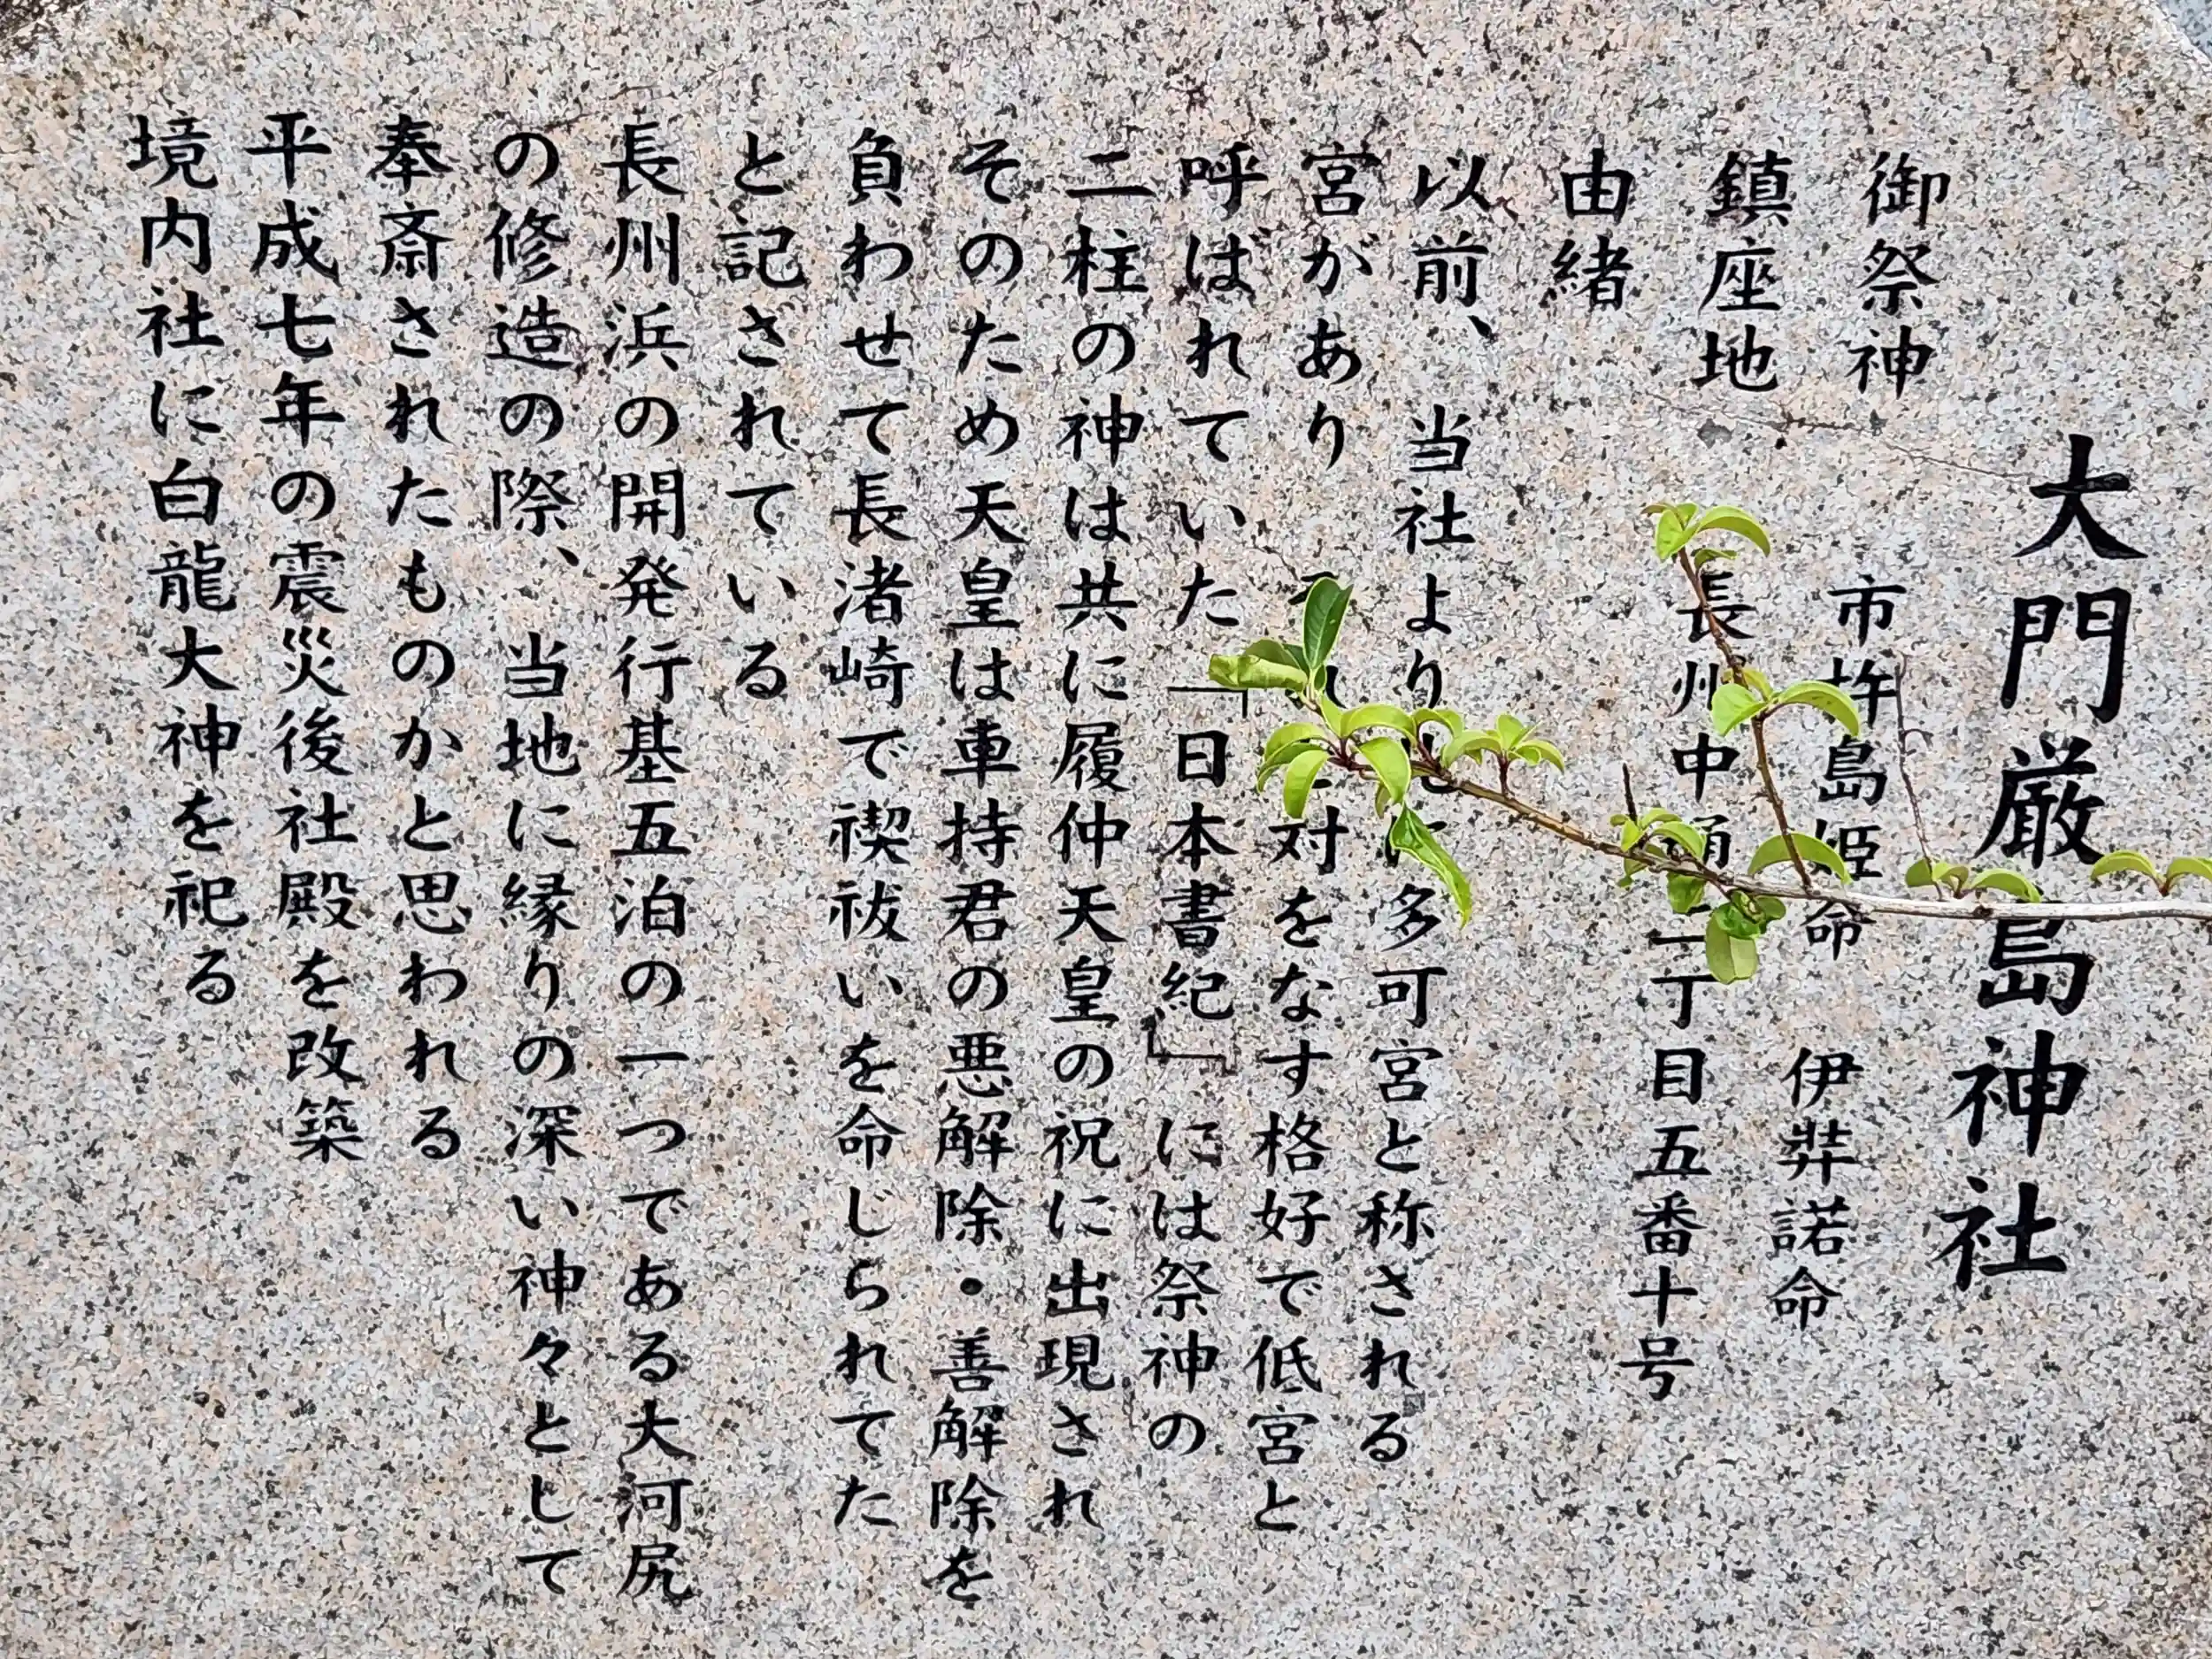 大門厳島神社
御祭神 市杵島姫命 伊弉諾命
鎮座地 長州中通二丁目五番十号
由緒
以前、当社より北に多可宮と称される
宮があり それと対をなす格好で低宮と
呼ばれていた 「日本書紀」には祭神の
二柱の神は共に履仲天皇の祝に出現され
そのため天皇は車持君の悪解除・善解除を
負わせて長渚崎で禊祓いを命じられてた
と記されている
長州浜の開発行基五泊の一つである大河尻
の修造の際、当地に縁りの深い神々として
奉斎されたものかと思われる
平成七年の震災後社殿を改築
境内社に白龍大神を祀る